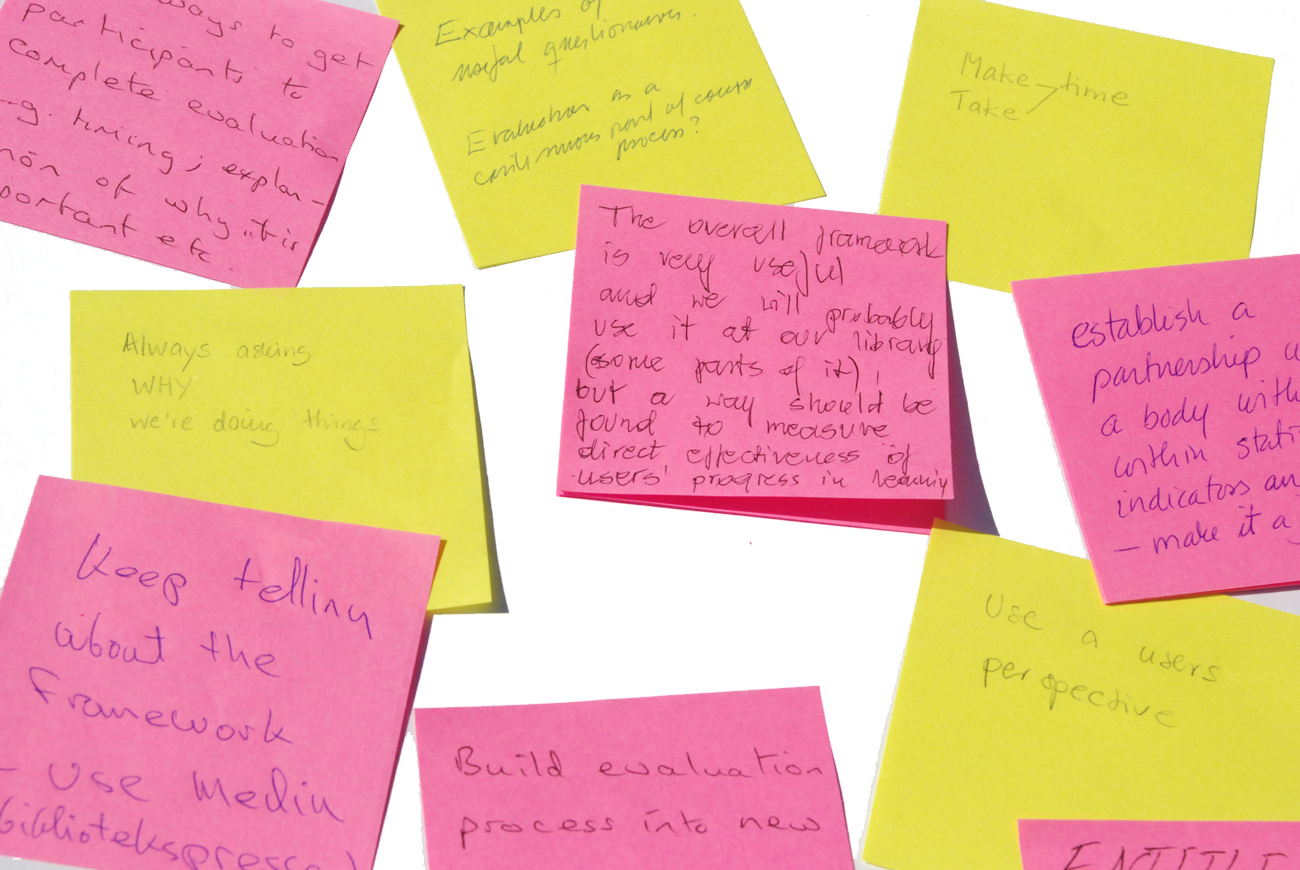 ways to get
participants to
complete evaluation
-g. timing; explan-
of why it is
portant etc.
Examples of
useful questionnaires.
Evaluation as a
continuous part of course
process?
Make
Take time
The overall framework
is very useful
and we will probably
use it at our library
(some parts of it),
but a way should be
found to measure
direct effectiveness of
users' progress in
establish a
partnership
a body with
within stati
indicators an
- make it a
Always asking
WHY
we're doing things
Keep telling
about the
Framework
- use media
biblioteks
Build evaluation
process into new
Use a users
perspective
ENTITLE